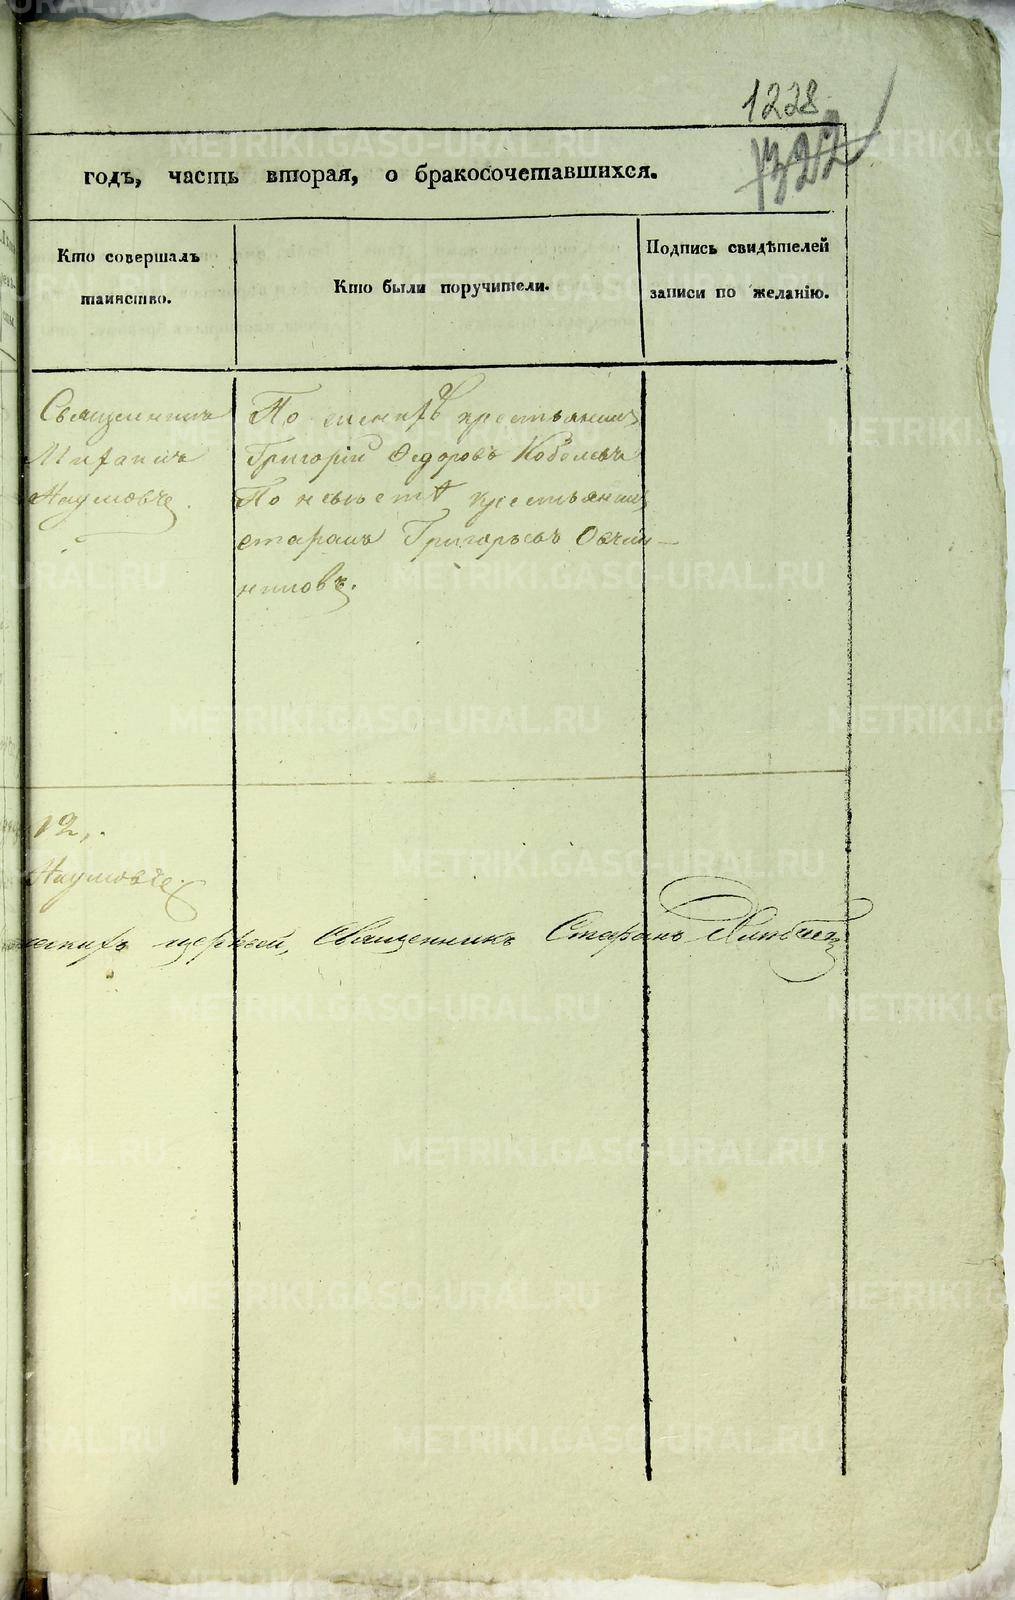 1228
1322
годъ, часть вторая, о бракосочетавшихся.
Кто совершалъ
таинство.
Кто были поручители.
Подпись свидѣтелей
записи по желанію.
Священникъ
Наумовъ
По женихѣ крестьянинъ
Григорій Ѳедоровъ Кобелевъ
По невѣстѣ крестьянинъ
Григорьевъ Овчин-
никовъ.
12,.
Наумовъ
церквей, Священникъ Стефанъ
METRIKI.GASO-URAL.RU